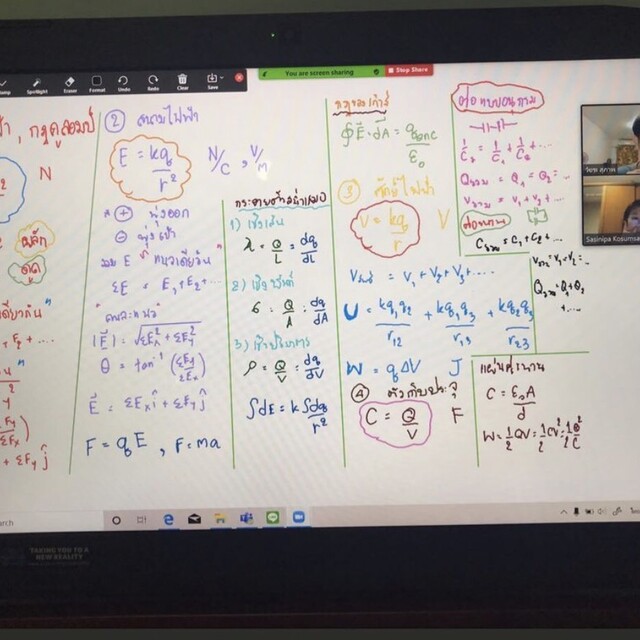 Spotlight
Eraser
Format
Undo
Redo
Clear
Save
You are screen sharing
Stop Share
, กฎคูลอมบ์
N
ผลัก
ดูด
② สนามไฟฟ้า
E = kq/r² N/C , V/m
⊕ พุ่งออก
⊖ พุ่งเข้า
รวม E "แนวเดียวกัน"
ΣE = E₁ + E₂ + ...
|E⃗| = √(ΣEₓ² + ΣEᵧ²)
θ = tan⁻¹ (ΣEᵧ/ΣEₓ)
E⃗ = ΣEₓ î + ΣEᵧ ĵ
F = qE , F = ma
กระจายตัวสม่ำเสมอ
1) เชิงเส้น
λ = Q/L = dq/dL
2) เชิงพื้นที่
σ = Q/A = dq/dA
3) เชิงปริมาตร
ρ = Q/V = dq/dV
∫dE = k∫dq/r²
กฎของเกาส์
∮E⃗·dA⃗ = q enc/ε₀
③ ศักย์ไฟฟ้า
V = kq/r V
V = V₁ + V₂ + V₃ + ....
U = kq₁q₂/r₁₂ + kq₁q₃/r₁₃ + kq₂q₃/r₂₃
W = qΔV J
④ ตัวเก็บประจุ
C = Q/V F
ต่ออนุกรม
1/C = 1/C₁ + 1/C₂ + ...
Qรวม = Q₁ = Q₂ = ..
Vรวม = V₁ + V₂ + ..
ต่อขนาน
Cรวม = C₁ + C₂ + ...
Vรวม = V₁ = V₂ = ..
Qรวม = Q₁ + Q₂
+ ....
แผ่นคู่ขนาน
C = ε₀A/d
W = ½QV = ½CV² = ½Q²/C
Sasinipa Kosums
TAKING YOU TO A
NEW REALITY